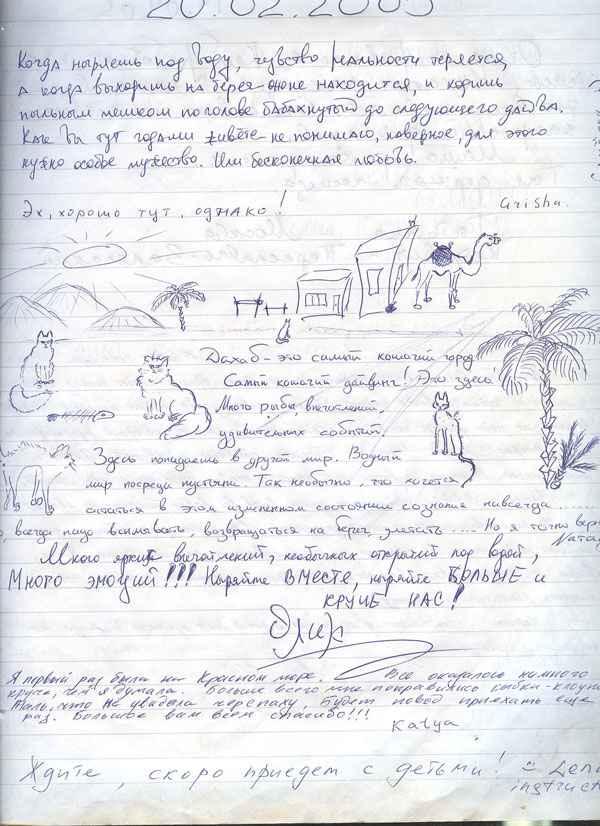 20.02.2005
Когда ныряешь под воду, чувство реальности теряется,
а когда выходишь на берег оное находится, и ходишь
пыльным мешком по голове бабахнутый до следующего дайва.
Как Вы тут годами живёте не понимаю, наверное, для этого
нужно особое мужество. Или бесконечная любовь.
Эх, хорошо тут, однако!
Grisha.
Дахаб - это самый кошачий город
Самый кошачий дайвинг! Это здесь!
Много рыбы, впечатлений,
удивительных событий.
Здесь попадаешь в другой мир. Водный
мир посреди пустыни. Так необычно, что хочется
остаться в этом измененном состоянии сознания навсегда .......
всегда надо всплывать, возвращаться на берег, улетать .... Но я точно вер
Nata
Много ярких впечатлений, необычных открытий под водой,
Много эмоций!!! Ныряйте ВМЕСТЕ, ныряйте БОЛЬШЕ и
КРУЧЕ НАС!
Я первый раз была на Красном море. Все оказалось намного
круче, чем я думала. Больше всего мне понравились рыбки-клоуны
Жаль, что не увидела черепаху, будет повод приехать еще
раз. Большое вам всем спасибо!!!
Katya
Ждите, скоро приедем с детьми! Lena
instruct